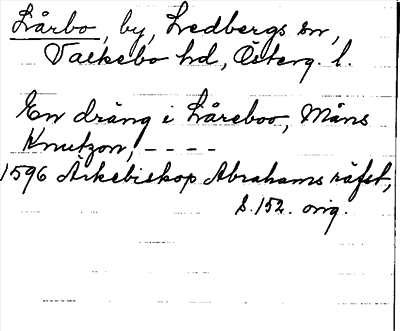 Lårbo, by, Ledbergs sn,
Valkebo hd, Österg. l.
En dräng i Låreboo, Måns
Knutzon, - - - -
1596 Ärkebiskop Abrahams räfst,
s. 152. orig.